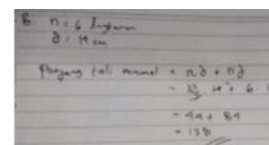 B n = 6 lingkaran
d = 14 cm
Panjang tali minimal = πd + nd
= 22/7 · 14 + 6 ·
= 44 + 84
= 128